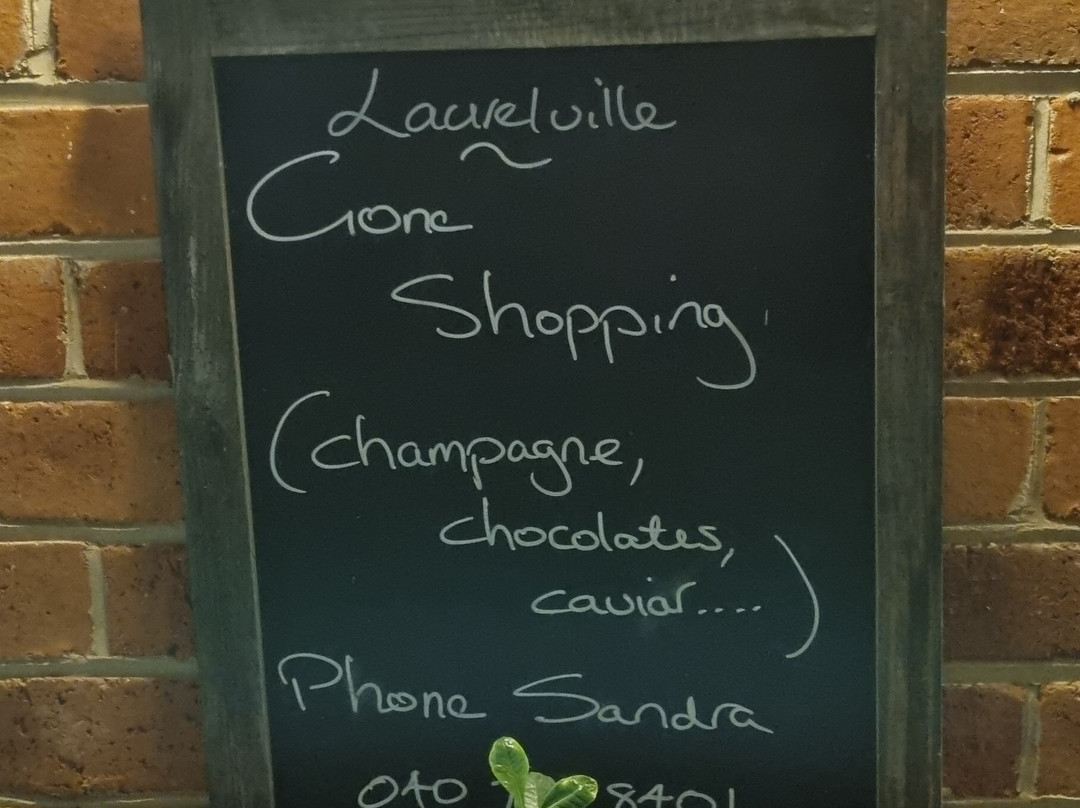 Laurelville
~
Gone
Shopping
(champagne,
chocolates,
caviar....)
Phone Sandra
040 8401